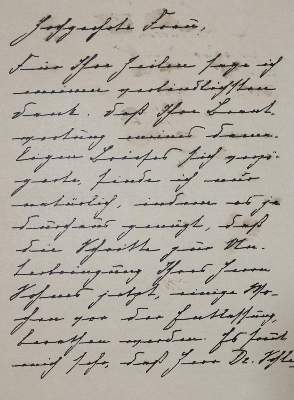 Hochgeehrte Frau,
Für Ihre Zeilen sage ich
meinen verbindlichsten
Dank. Daß Ihre Beant-
wortung meines dama-
ligen Briefes sich verzö-
gerte, finde ich nur
natürlich, indem es ja
durchaus genügt, daß
die Schritte zur Un-
terbringung Ihres Herrn
Sohnes jetzt, einige Wo-
chen vor der Entlassung,
berathen werden. Es freut
mich sehr, daß Herr Dr.